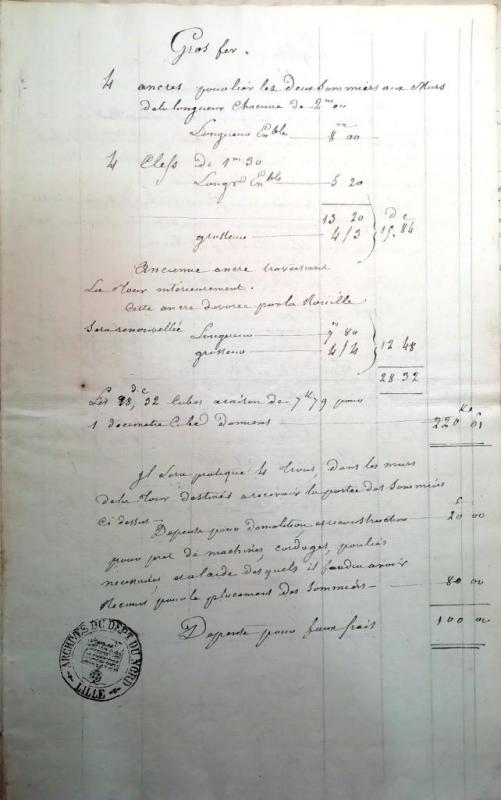 Gros fer.
4 ancres pour lier les deux sommiers aux Murs
de la longueur chacune de 2m 00
Longueur Enble 8m 00
4 Clefs de 1m 30
Longr Enble 5 20
13 20
grosseur 4/3 } dc 15. 84
Ancienne ancre traversant
La Tour intérieurement.
Cette ancre dévorée par la Rouille
Sera renouvellée Longueur 7m 80
grosseur 4/4 } 12 48
28 32
Les 28, dc 32 Cubes a raison de 7k 79 pour
1 decimetre Cube donnent 220 Ko 61
Il sera pratiqué 4 trous, dans les murs
de la Tour destinés a recevoir la portée des Sommiers
Ci dessus — Depense pour demolition et reconstruction 20 f 00
pour pret de machines, cordages, poulies
necessaires et a l'aide desquels il faudra avoir
Recours pour le placement des Sommiers 80 00
Depense pour faux frais 100 00
ARCHIVES DU DEPT DU NORD
LILLE